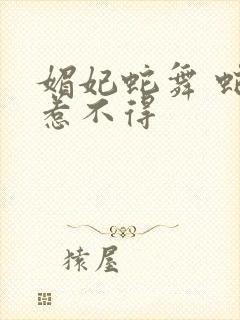 媚妃蛇舞 蛇
惹不得
猿屋